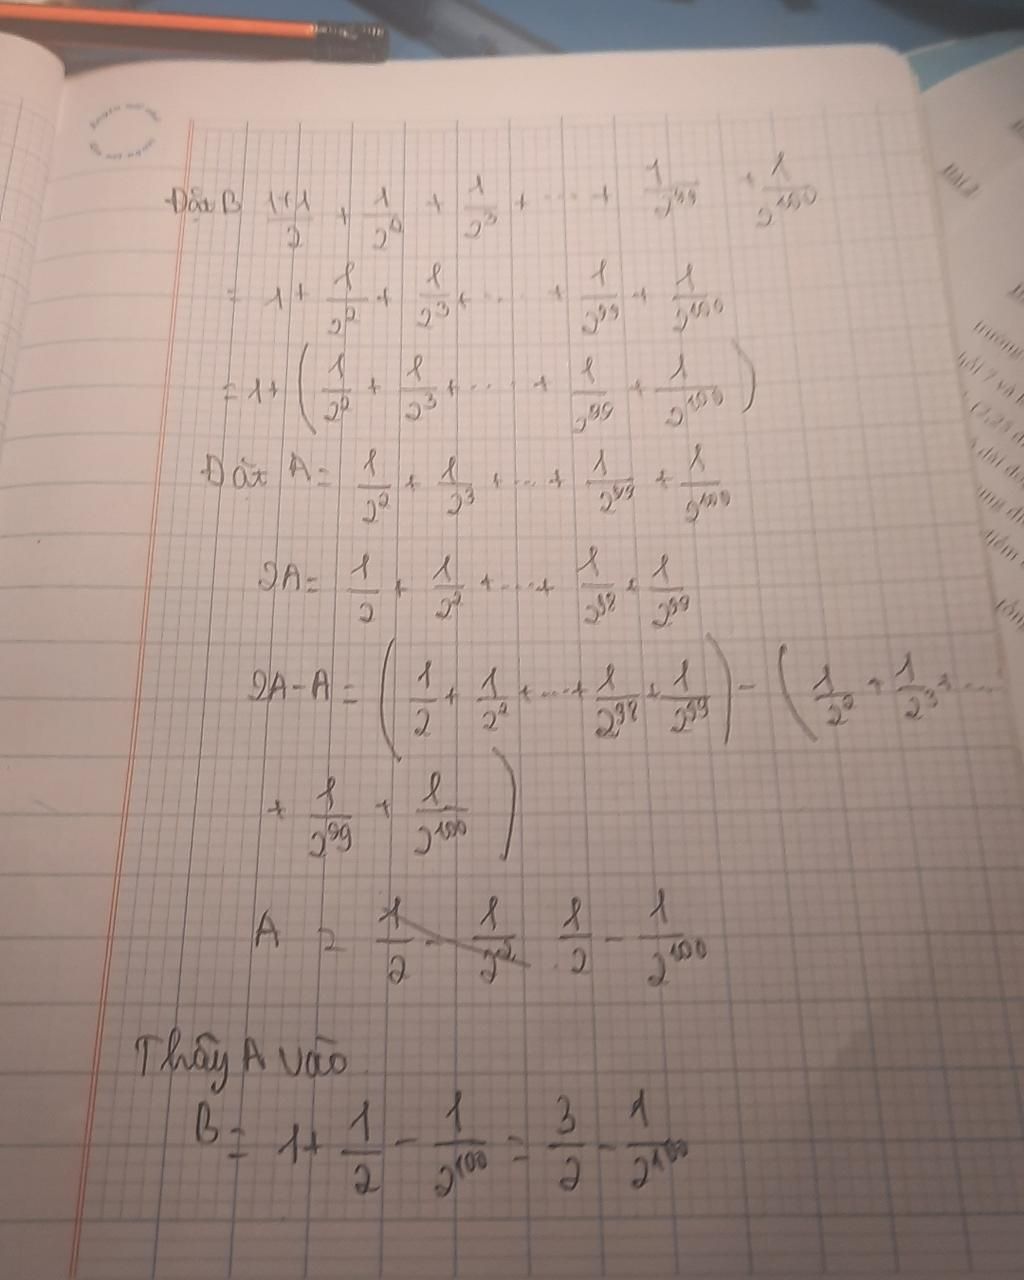 Đặt B 1+1/2 + 1/2² + 1/2³ + ... + 1/2⁹⁹ + 1/2¹⁰⁰
= 1 + 1/2² + 1/2³ + ... + 1/2⁹⁹ + 1/2¹⁰⁰
= 1 + (1/2² + 1/2³ + ... + 1/2⁹⁹ + 1/2¹⁰⁰)
Đặt A = 1/2² + 1/2³ + ... + 1/2⁹⁹ + 1/2¹⁰⁰
2A = 1/2 + 1/2² + ... + 1/2⁹⁸ + 1/2⁹⁹
2A - A = (1/2 + 1/2² + ... + 1/2⁹⁸ + 1/2⁹⁹) - (1/2² + 1/2³ + ...
+ 1/2⁹⁹ + 1/2¹⁰⁰)
A = 1/2 - 1/2¹⁰⁰
Thay A vào
B = 1 + 1/2 - 1/2¹⁰⁰ = 3/2 - 1/2¹⁰⁰